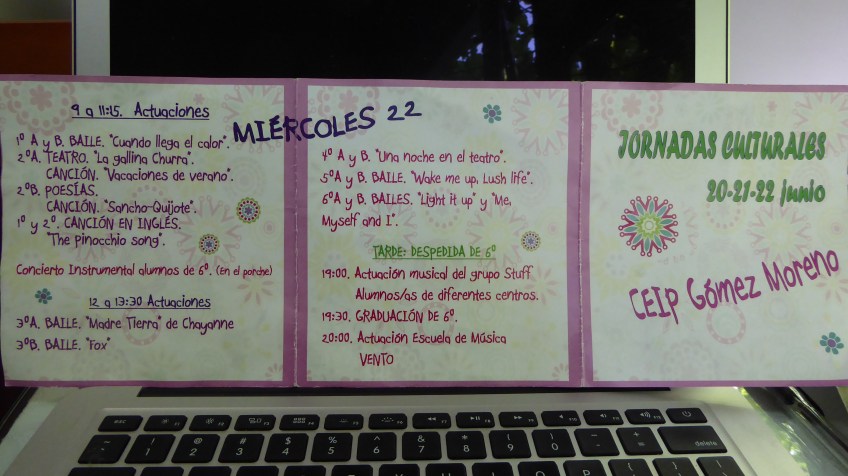 MIÉRCOLES 22
9 a 11:15. Actuaciones
1º A y B. BAILE. "Cuando llega el calor".
2ºA. TEATRO. "La gallina Churra".
CANCIÓN. "Vacaciones de verano".
2ºB. POESÍAS.
CANCIÓN. "Sancho-Quijote".
1º y 2º. CANCIÓN EN INGLÉS.
"The pinocchio song".
Concierto Instrumental alumnos de 6º. (En el porche)
12 a 13:30 Actuaciones
3ºA. BAILE. "Madre Tierra" de Chayanne
3ºB. BAILE. "Fox"
4º A y B. "Una noche en el teatro".
5ºA y B. BAILE. "Wake me up, Lush life".
6ºA y B. BAILES. "Light it up" y "Me,
Myself and I".
TARDE: DESPEDIDA DE 6º
19:00. Actuación musical del grupo Stuff
Alumnos/as de diferentes centros.
19:30. GRADUACIÓN DE 6º.
20:00. Actuación Escuela de Música
VENTO
JORNADAS CULTURALES
20-21-22 junio
CEIP Gómez Moreno
esc
! @ # $ % ^ & * ( ) _ +
1 2 3 4 5 6 7 8 9 0 - =
delete